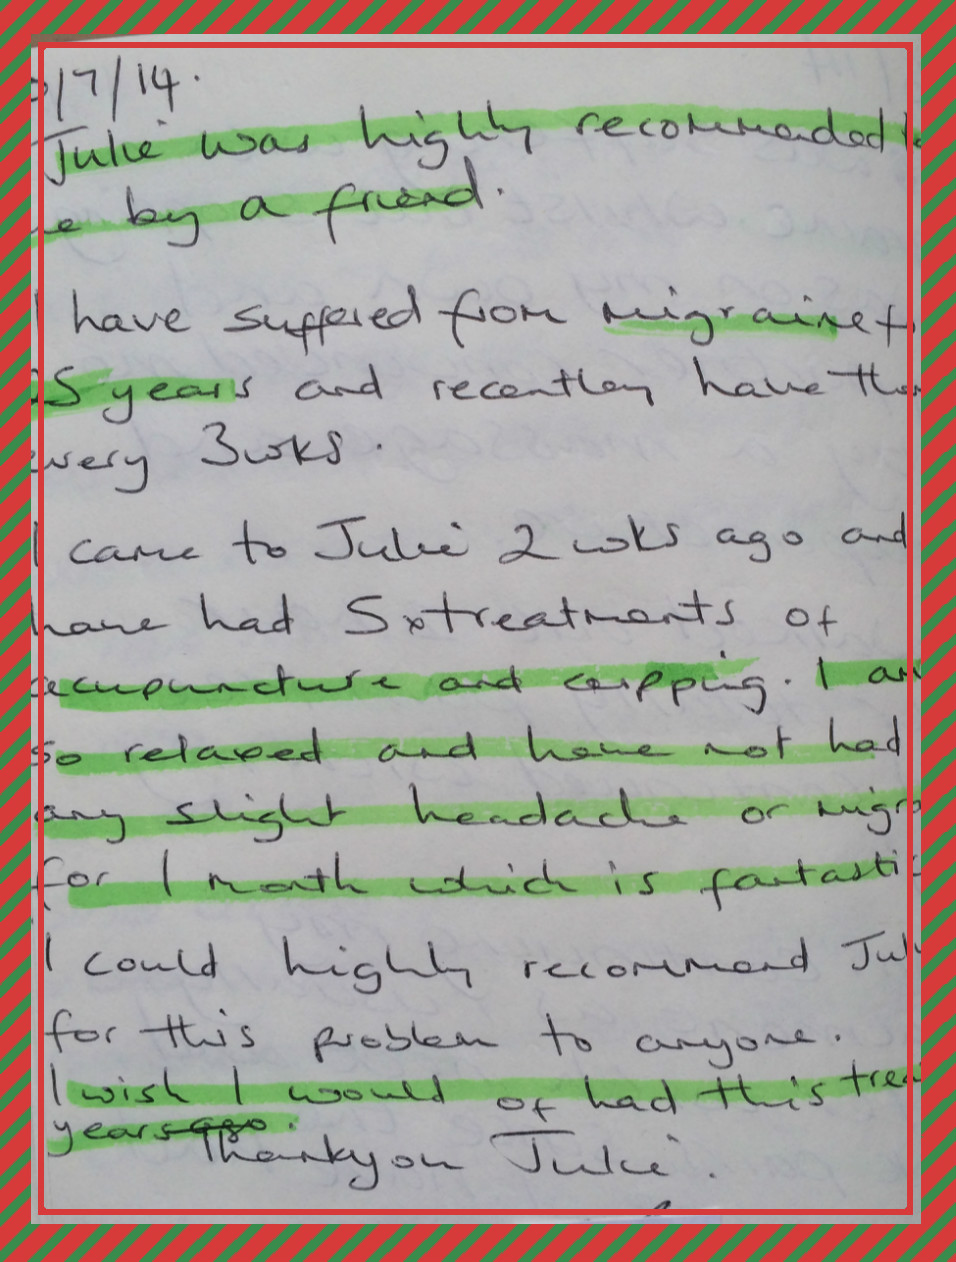 /7/14.
Julie was highly recommended
by a friend.
I have suffered from migraine
5 years and recently have
every 3wks.
I came to Julie 2 wks ago and
have had 5xtreatments of
acupuncture and cupping. I am
so relaxed and have not had
any slight headache or migra
for 1 month which is fantastic
I could highly recommend Juli
for this problem to anyone.
I wish I would of had this trea
years ago.
Thankyou Julie.